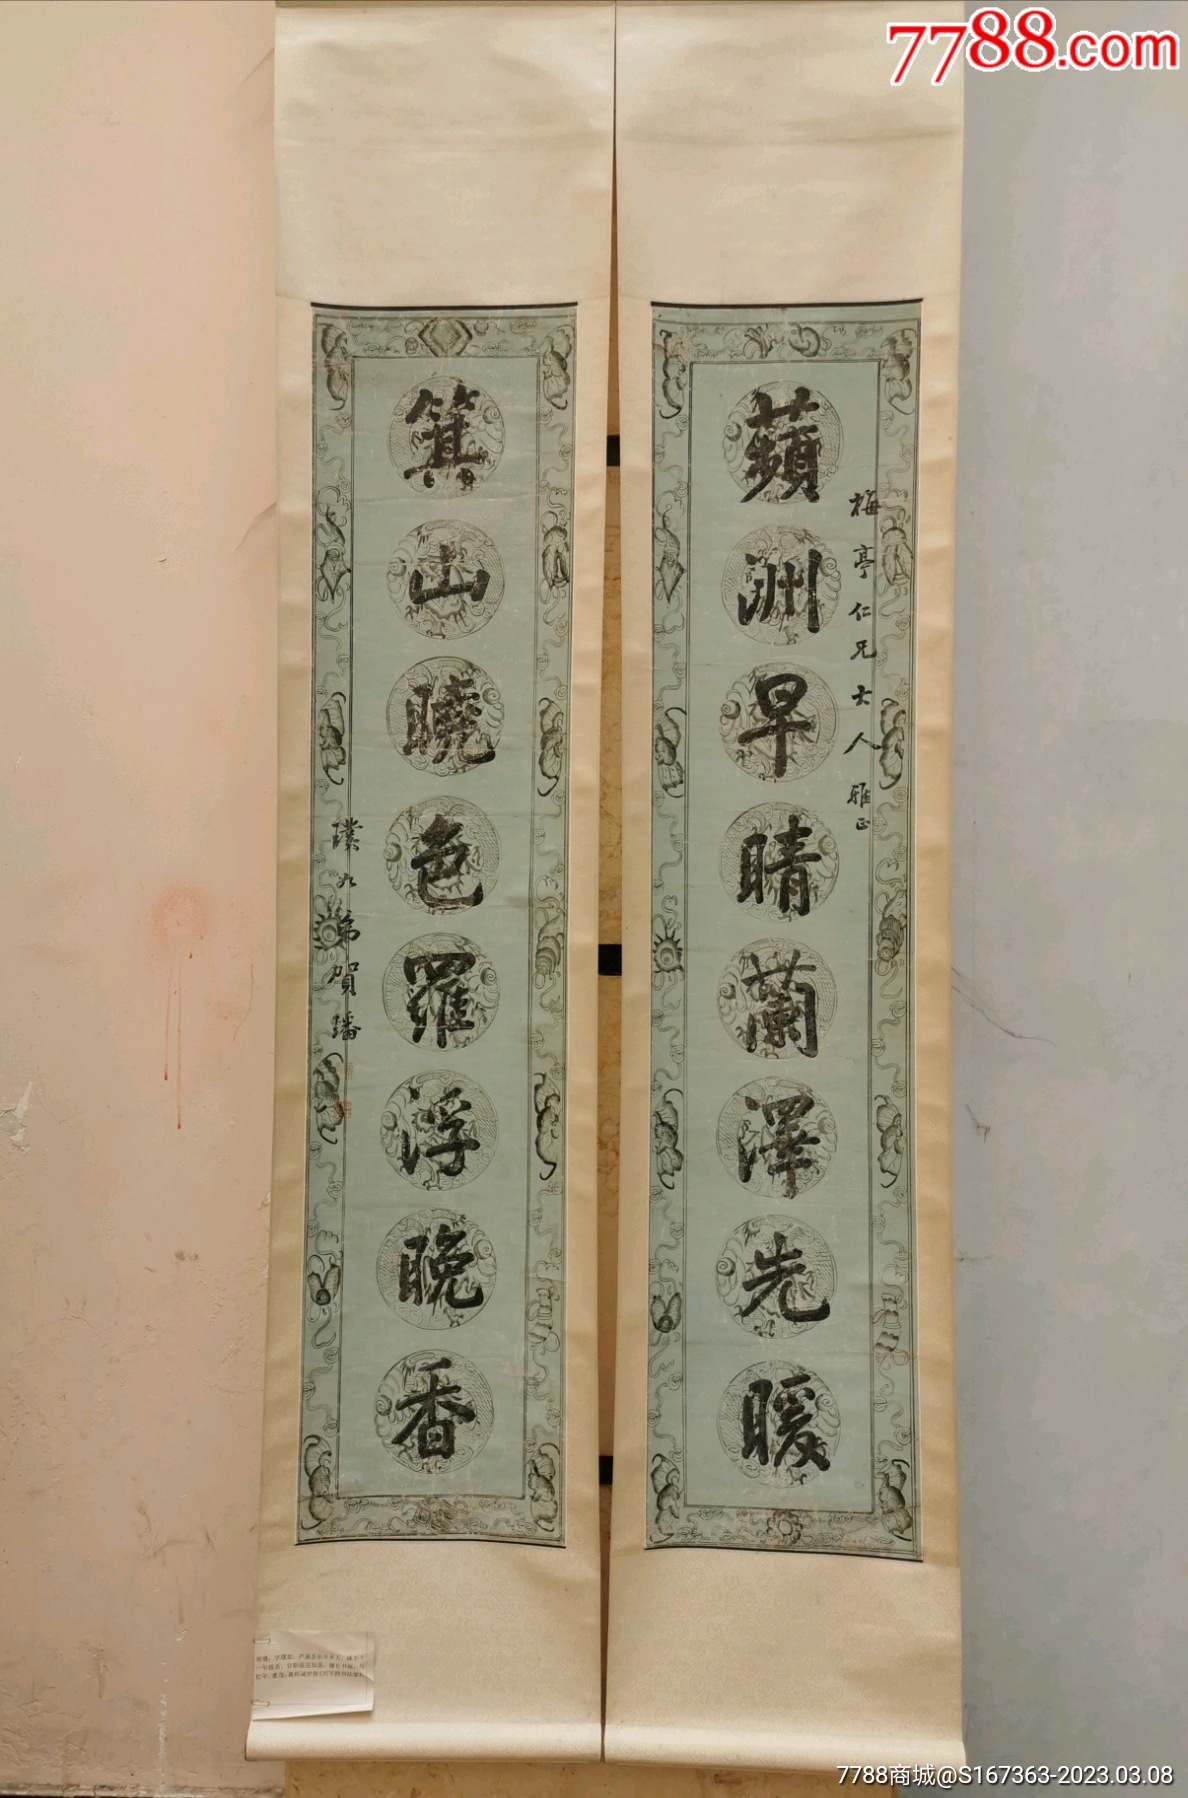 7788.com
梅亭仁兄大人雅正
蘋洲早晴蘭澤先暖
箕山曉色羅浮晚香
璞九弟賀璠
7788商城@S167363-2023.03.08